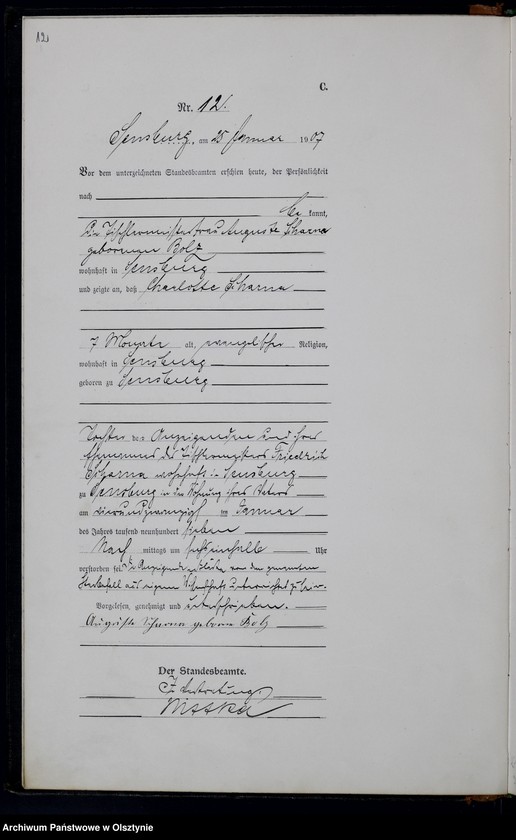 12
C.
Nr. 12.
Sensburg, am 25 Januar 1907
Vor dem unterzeichneten Standesbeamten erschien heute, der Persönlichkeit
nach
be kannt,
die Tischlermeisterfrau Auguste Scharna
geborenen Bolz
wohnhaft in Sensburg
und zeigte an, daß Charlotte Scharna
7 Monate alt, evangelischer Religion,
wohnhaft in Sensburg
geboren zu Sensburg
Tochter der Anzeigenden und ihres
Ehemannes des Tischlermeisters Friedrich
Scharna wohnhaft in Sensburg
zu Sensburg in der Wohnung ihres Vaters
am vierundzwanzigsten Januar
des Jahres tausend neunhundert sieben
Nach mittags um sechseinhalb Uhr
verstorben sei. Die Anzeigende erklärte von dem genannten
Sterbefall aus eigener Wissenschaft unterrichtet zu sein.
Vorgelesen, genehmigt und unterschrieben.
Auguste Scharna geborene Bolz
Der Standesbeamte.
In Vertretung
Archiwum Państwowe w Olsztynie